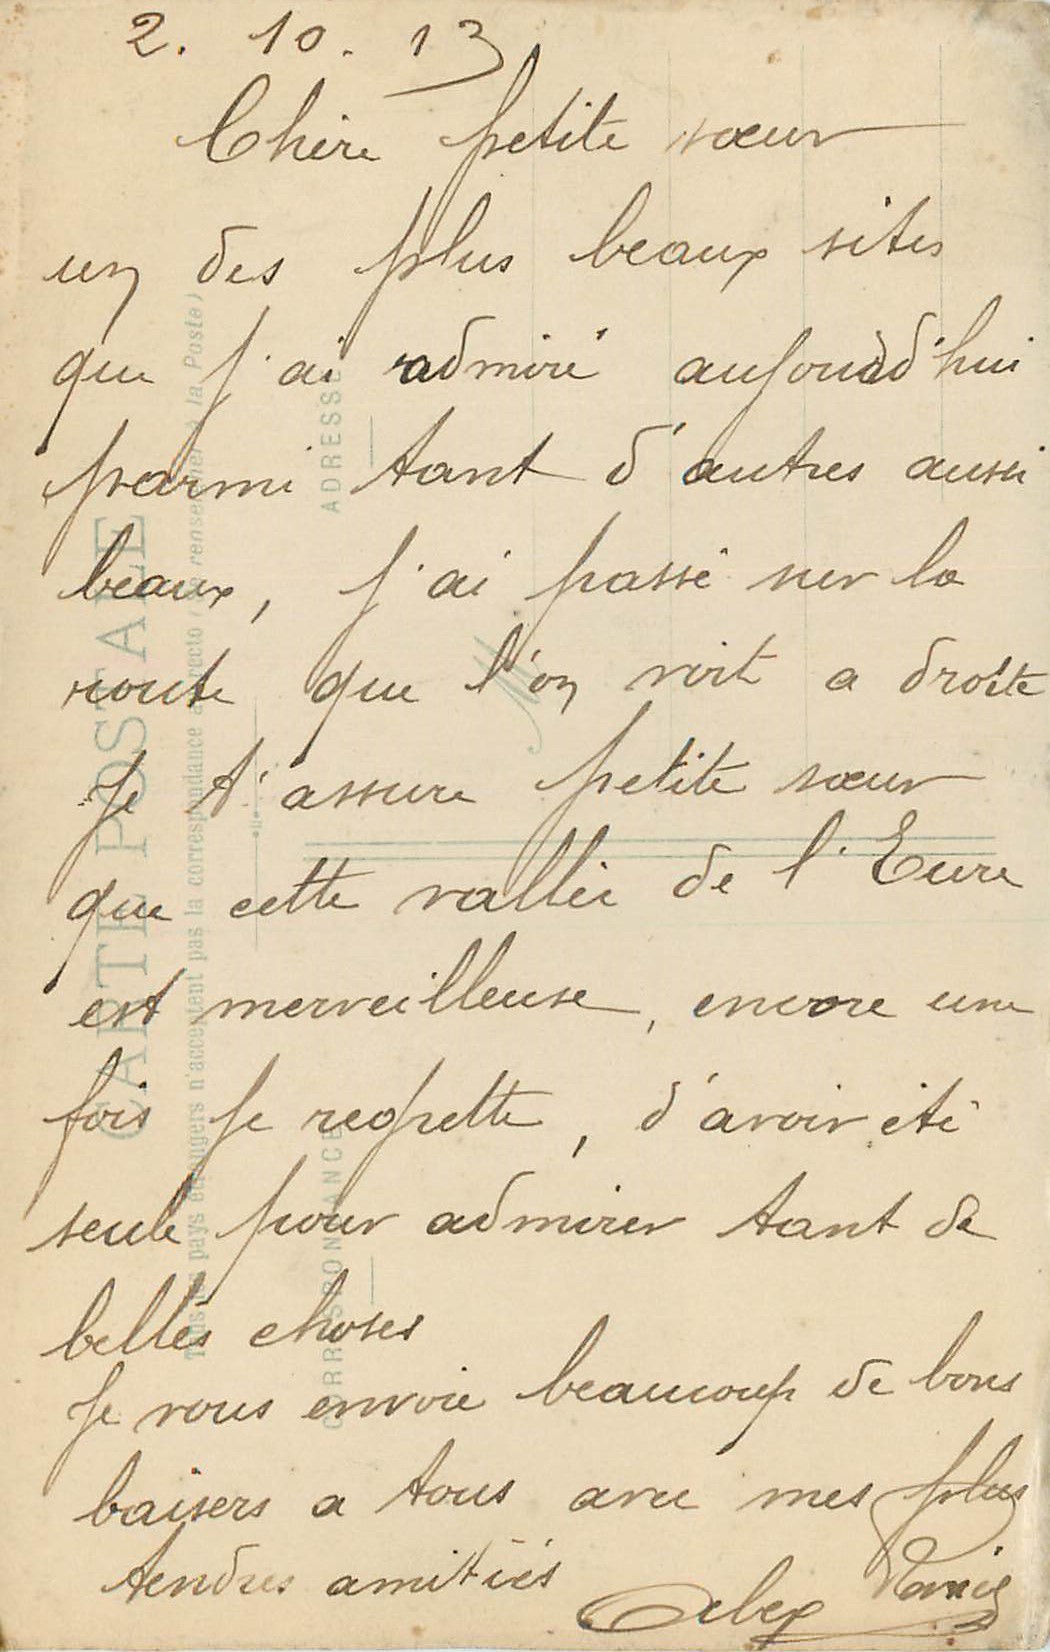 2. 10. 13
Chère petite sœur
un des plus beaux sites
que j'ai admiré aujourd'hui
parmi tant d'autres aussi
beaux, j'ai passé sur la
route que l'on voit a droite
Je t'assure petite sœur
que cette vallée de l'Eure
est merveilleuse, encore une
fois je regrette, d'avoir été
seule pour admirer tant de
belles choses
Je vous envoie beaucoup de bons
baisers a tous avec mes plus
tendres amitiés
CARTE POSTALE
Tous les pays étrangers n'acceptent pas la correspondance au recto (Se renseigner à la Poste)
CORRESPONDANCE
ADRESSE
M